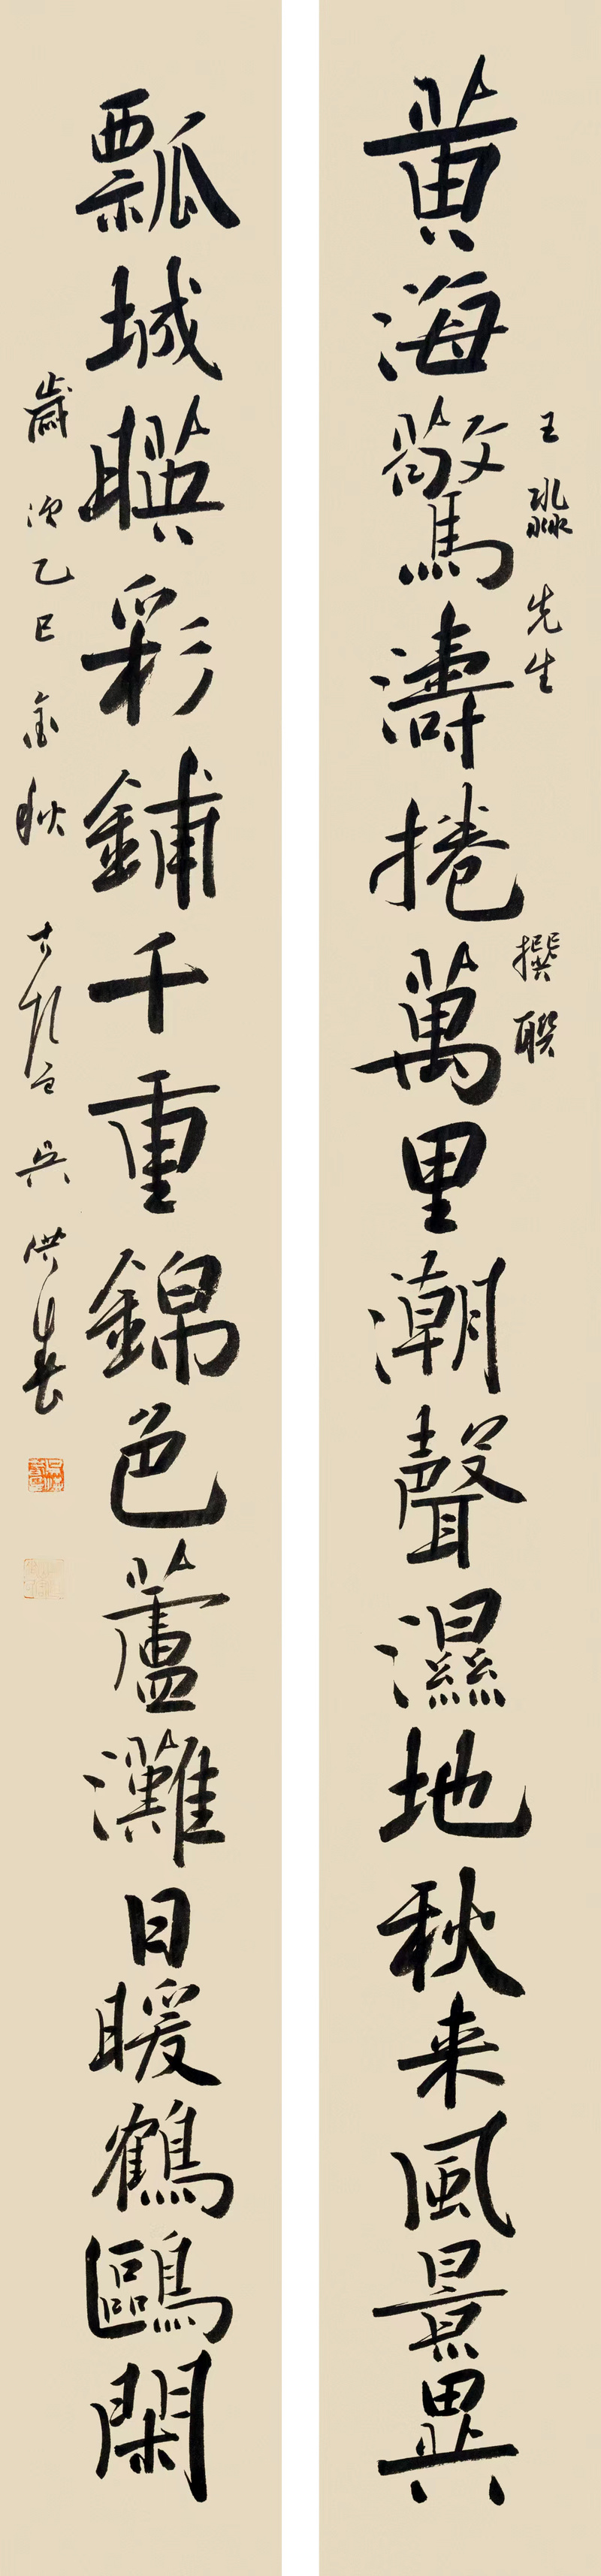 王淼先生 撰聯
黄海驚濤捲萬里潮聲濕地秋来風景異
瓢城暎彩鋪千重錦色蘆灘日暖鶴鷗閑
歲次乙巳金秋 吳洪春